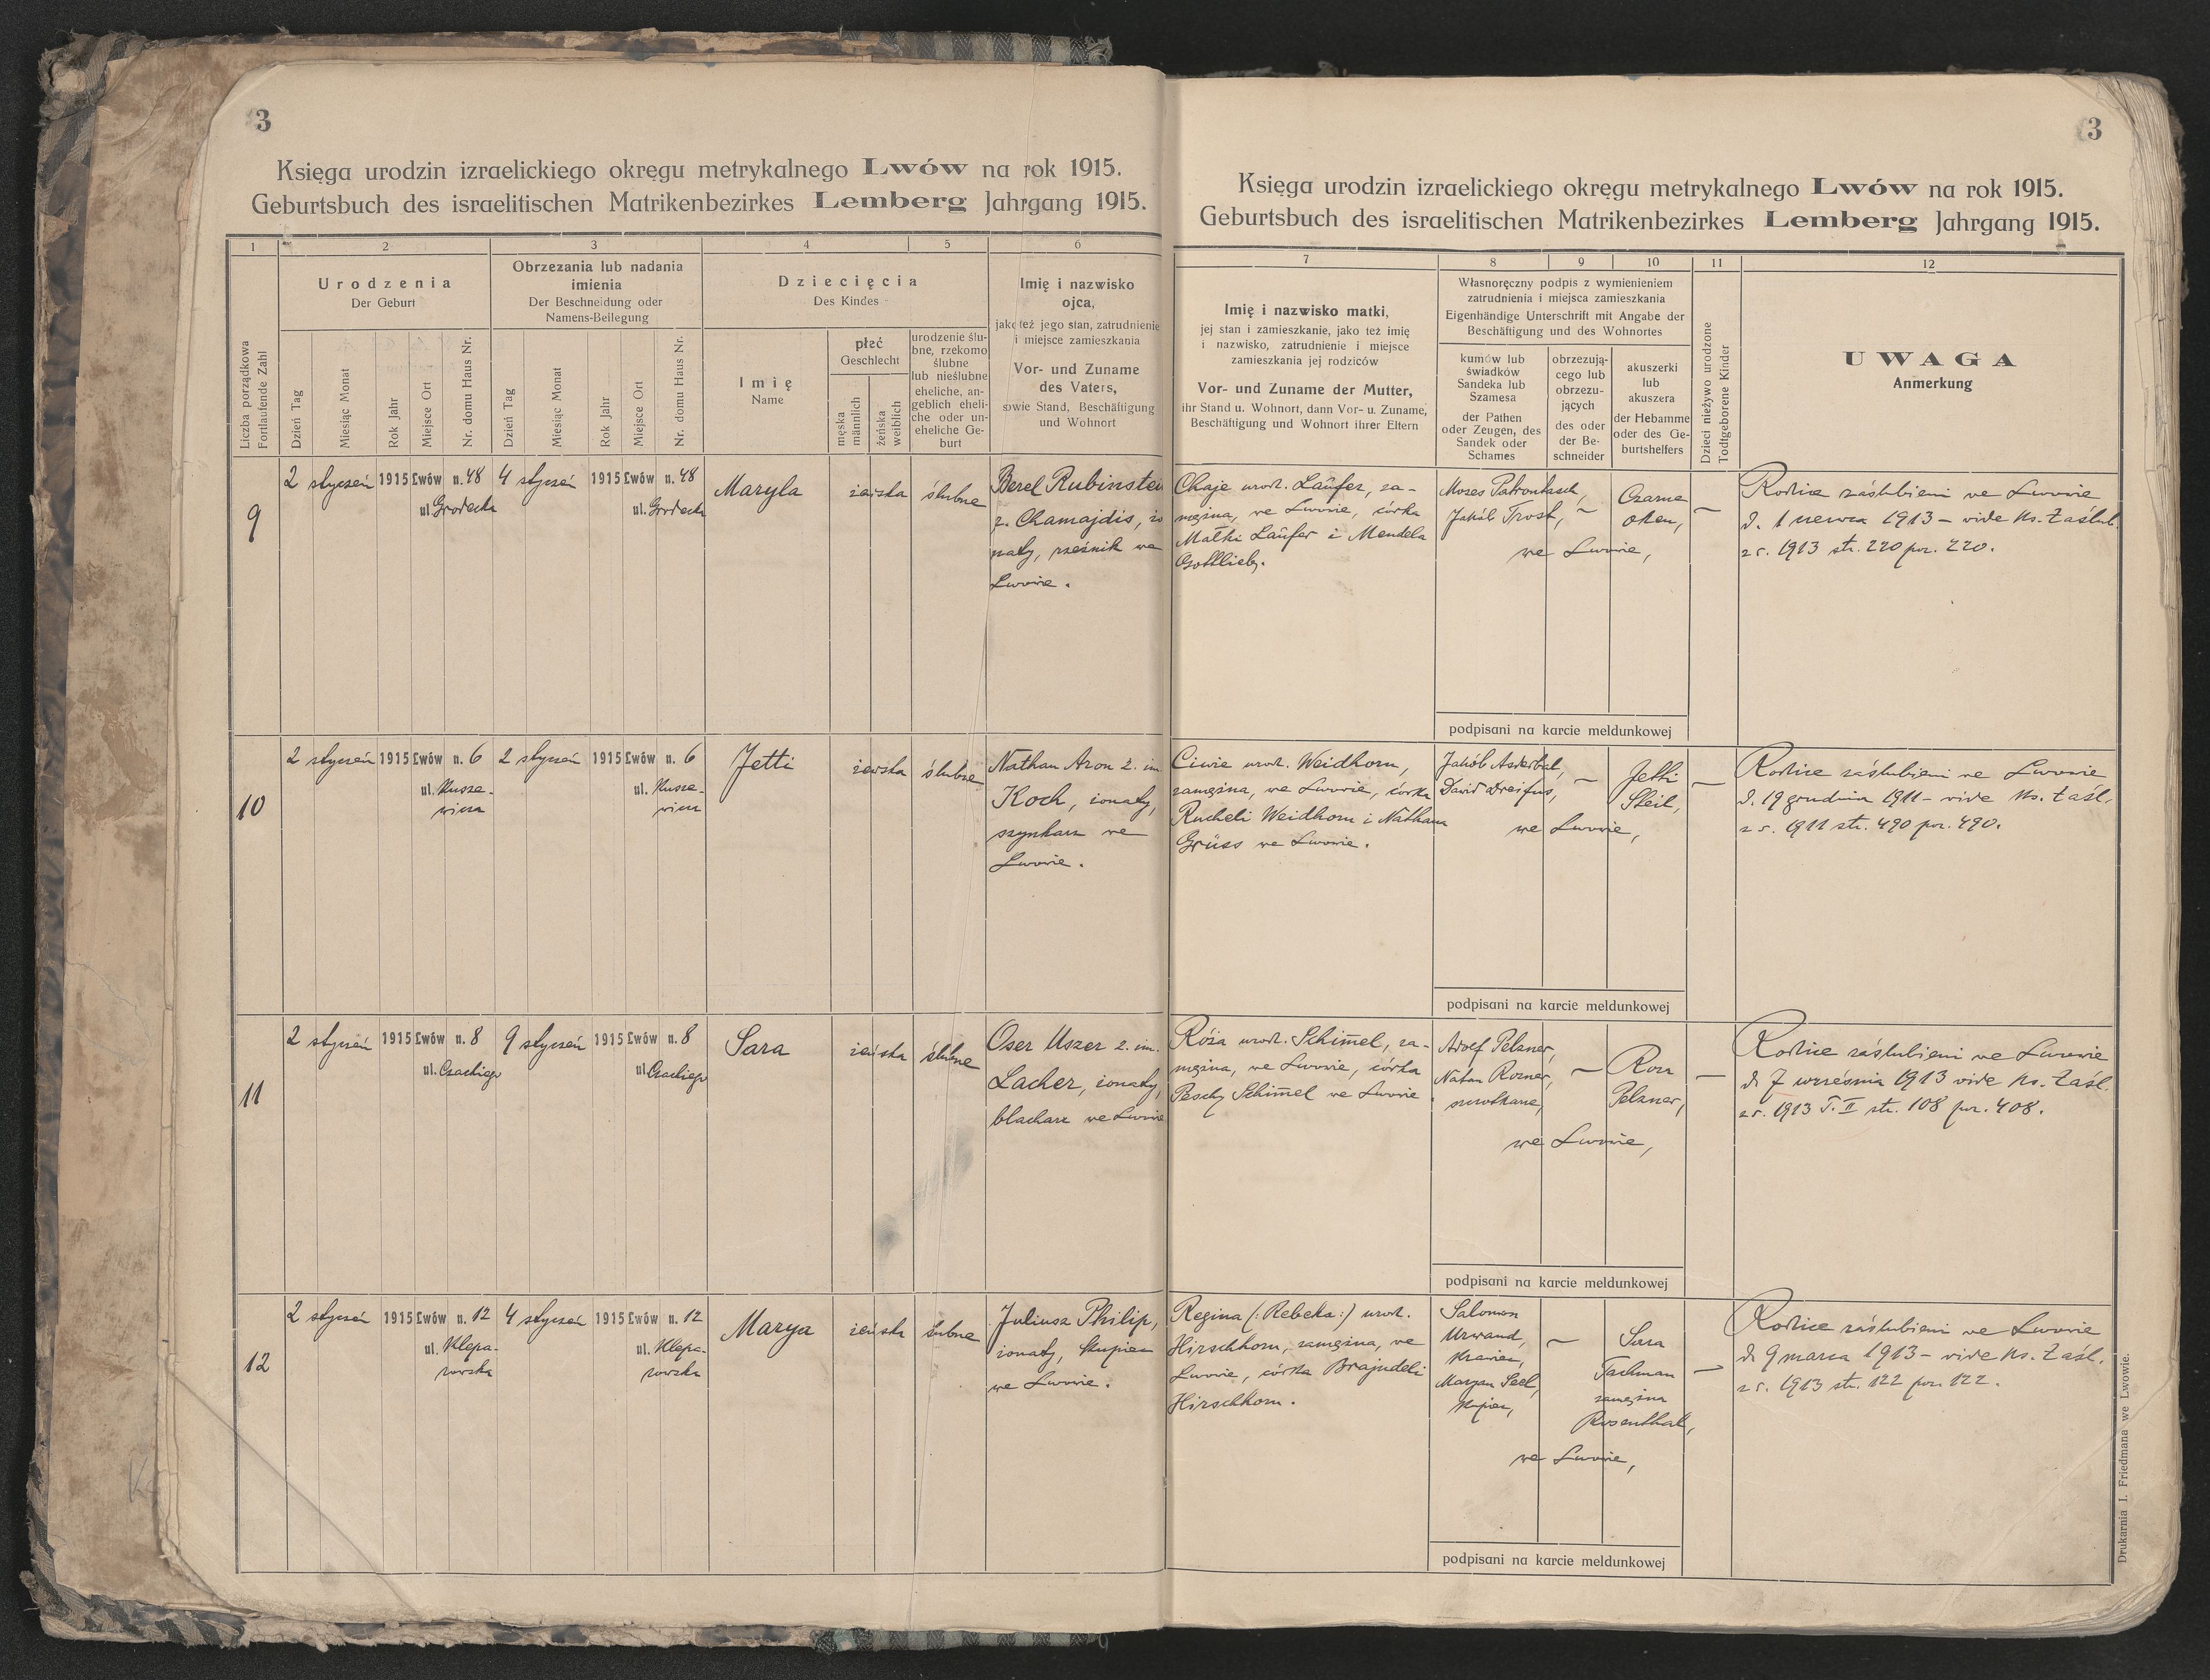 3
Księga urodzin izraelickiego okręgu metrykalnego Lwów na rok 1915.
Geburtsbuch des israelitischen Matrikenbezirkes Lemberg Jahrgang 1915.
1 2 3 4 5 6
Liczba porządkowa
Fortlaufende Zahl
Urodzenia
Der Geburt
Dzień Tag
Miesiąc Monat
Rok Jahr
Miejsce Ort
Nr. domu Haus Nr.
Obrzezania lub nadania
imienia
Der Beschneidung oder
Namens-Beilegung
Dzień Tag
Miesiąc Monat
Rok Jahr
Miejsce Ort
Nr. domu Haus Nr.
Dziecięcia
Des Kindes
Imię
Name
płeć
Geschlecht
męska
männlich
żeńska
weiblich
urodzenie ślu-
bne, rzekomo
ślubne
lub nieślubne
eheliche, an-
geblich eheli-
che oder un-
eheliche Ge-
burt
Imię i nazwisko
ojca,
jako też jego stan, zatrudnienie
i miejsce zamieszkania
Vor- und Zuname
des Vaters,
sowie Stand, Beschäftigung
und Wohnort
9
2 styczeń 1915 Lwów n. 48 4 styczeń 1915 Lwów n. 48
ul. Grodecka ul. Grodecka
Maryla żeńska ślubne
Berel Rubinstein
z. Chamajdis, żo
naty, rzeźnik we
Lwowie.
10
2 styczeń 1915 Lwów n. 6 2 styczeń 1915 Lwów n. 6
ul. Kusze- ul. Kusze-
wicza wicza
Jetti żeńska ślubne
Nathan Aron 2. im.
Koch, żonaty,
szynkarz we
Lwowie.
11
2 styczeń 1915 Lwów n. 8 9 styczeń 1915 Lwów n. 8
ul. Czackiego ul. Czackiego
Sara żeńska ślubne
Oser Uszer 2. im.
Lacher, żonaty,
blacharz we Lwowie
12
2 styczeń 1915 Lwów n. 12 4 styczeń 1915 Lwów n. 12
ul. Klepa- ul. Klepa-
rowska rowska
Marya żeńska ślubne
Juliusz Philip,
żonaty, kupiec
we Lwowie.
3
Księga urodzin izraelickiego okręgu metrykalnego Lwów na rok 1915.
Geburtsbuch des israelitischen Matrikenbezirkes Lemberg Jahrgang 1915.
7 8 9 10 11 12
Imię i nazwisko matki,
jej stan i zamieszkanie, jako też imię
i nazwisko, zatrudnienie i miejsce
zamieszkania jej rodziców
Vor- und Zuname der Mutter,
ihr Stand u. Wohnort, dann Vor- u. Zuname,
Beschäftigung und Wohnort ihrer Eltern
Własnoręczny podpis z wymienieniem
zatrudnienia i miejsca zamieszkania
Eigenhändige Unterschrift mit Angabe der
Beschäftigung und des Wohnortes
kumów lub
świadków
Sandeka lub
Szamesa
der Pathen
oder Zeugen, des
Sandek oder
Schames
obrzezują-
cego lub
obrzezu-
jących
des oder
der Be-
schneider
akuszerki
lub
akuszera
der Hebamme
oder des Ge-
burtshelfers
Dzieci nieżywo urodzone
Todtgeborene Kinder
UWAGA
Anmerkung
Chaje urodz. Laüfer, za-
mężna, we Lwowie, córka
Małki Laüfer i Mendela
Gottlieb.
Moses Patrontasch,
Jakób Trost, ~
Czarne
oken,
we Lwowie,
Rodzice zaślubieni we Lwowie
d. 1 czerwca 1913 – vide ks. Zaślub.
z r. 1913 str. 220 poz. 220.
podpisani na karcie meldunkowej
Ciwie urodz. Weidhorn,
zamężna, we Lwowie, córka
Rucheli Weidhorn i Nathana
Grüss we Lwowie.
Dawid Dreifus,
Jetti
Steil,
we Lwowie,
Rodzice zaślubieni we Lwowie
d. 19 grudnia 1911 – vide ks. Zaśl.
z r. 1911 str. 490 poz. 490.
podpisani na karcie meldunkowej
Róża urodz. Schim̅el, za-
mężna, we Lwowie, córka
Peschy Schim̅el we Lwowie
Adolf Pelzner,
Natan Rozner,
Roza
Pelzner,
we Lwowie,
Rodzice zaślubieni we Lwowie
d. 7 września 1913 vide ks. Zaśl.
z r. 1913 T. II str. 108 poz. 408.
podpisani na karcie meldunkowej
Regina (: Rebeka :) urodz.
Hirschhorn, zamężna, we
Lwowie, córka Brajndeli
Hirschhorn.
Salomon
Urwand,
krawiec,
Maryan Seel,
kupiec,
Sara
Tachman
zamężna
Rosenthal,
we Lwowie,
Rodzice zaślubieni we Lwowie
d. 9 marca 1913 – vide ks. Zaśl.
z r. 1913 str. 122 poz. 122.
podpisani na karcie meldunkowej
Drukarnia I. Friedmana we Lwowie.